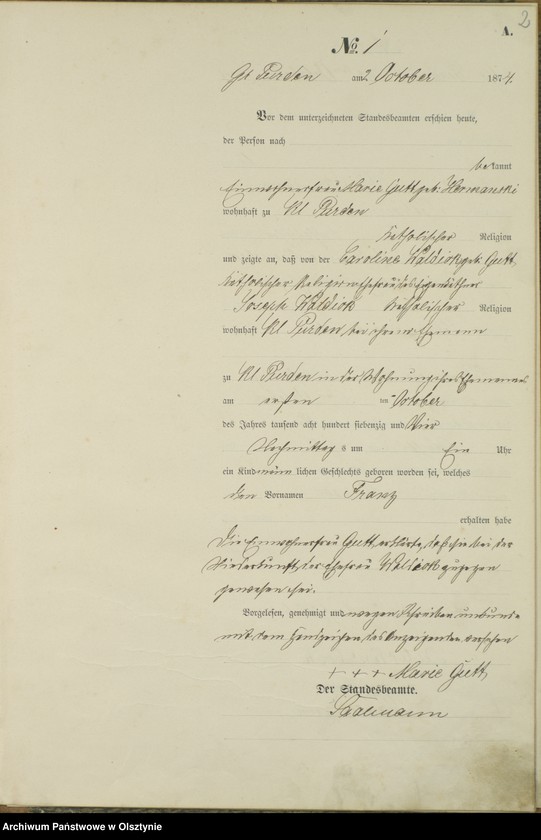 2
A.
No. 1
Gr Purden am 2 October 1874.
Vor dem unterzeichneten Standesbeamten erschien heute,
der Person nach
bekannt
Einwohnerfrau Marie Gutt geb. Hermanski
wohnhaft zu Kl Purden
katholischer Religion
und zeigte an, daß von der Caroline geb. Gutt
katholischer Religion Ehefrau des Eigenkäthner
Joseph katholischer Religion
wohnhaft Kl Purden bei ihrem Ehemann
zu Kl Purden in der Wohnung ihres Ehemannes
am ersten ten October
des Jahres tausend acht hundert siebenzig und Vier
Nachmittags um Ein Uhr
ein Kind männlichen Geschlechts geboren worden sei, welches
den Vornamen Franz
erhalten habe
Die Einwohnerfrau Gutt erklärte, daß sie bei der
Niederkunft der Ehefrau zugegen
gewesen sei.
Vorgelesen, genehmigt und wegen Schreibensunkunde
mit dem Handzeichen des Anzeigenden versehen
+ + + Marie Gutt
Der Standesbeamte.
Archiwum Państwowe w Olsztynie